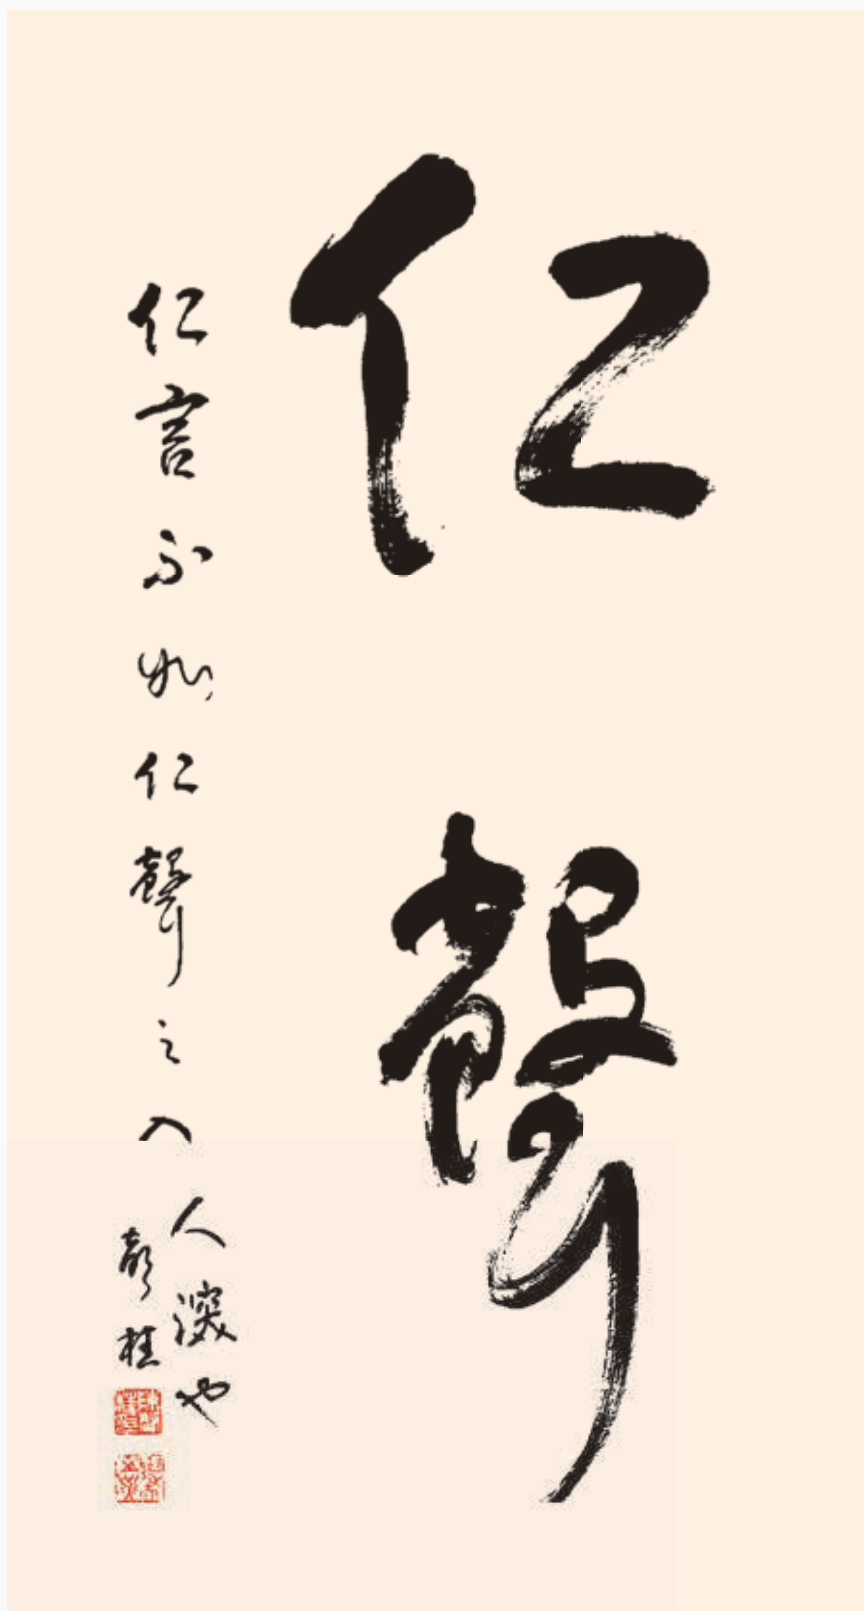 仁聲
仁言不如仁聲之入
人深也
彭桂